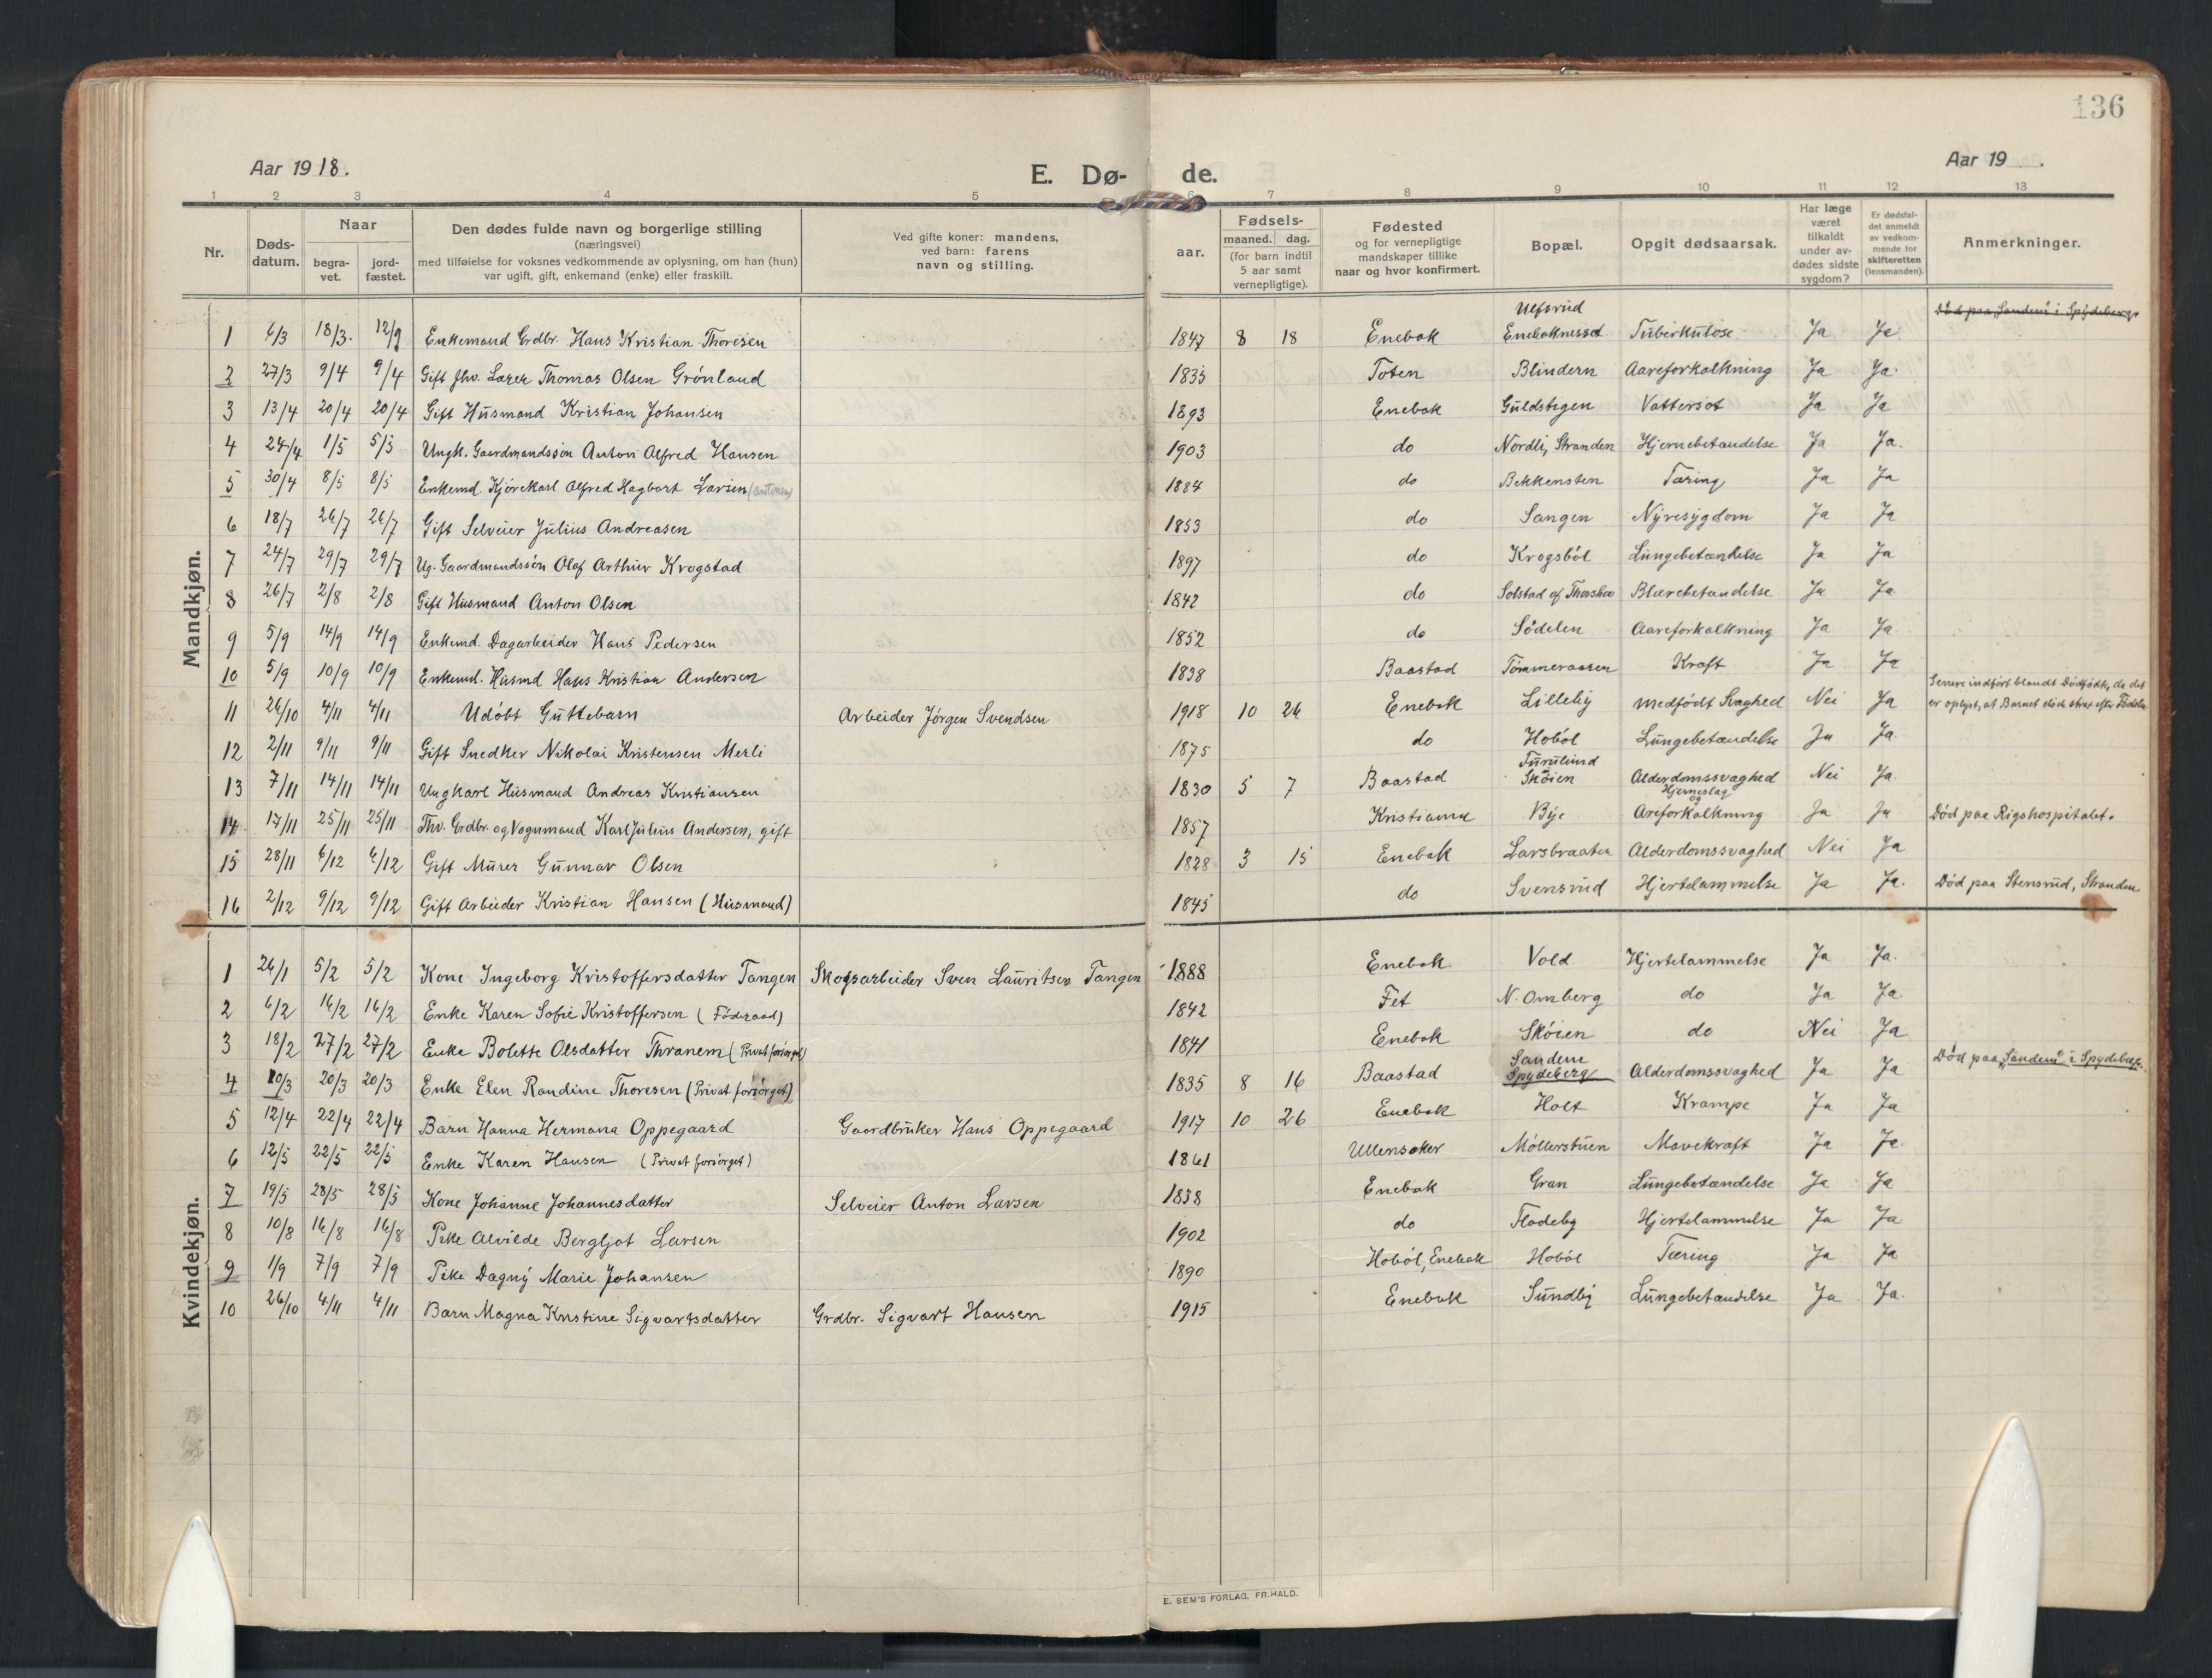 136
Aar 1918. E. Dø- de. Aar 19 .
1 2 3 4 5 6 7 8 9 10 11 12 13
Nr. Døds-datum. Naar begra-vet. jord-fæstet. Den dødes fulde navn og borgerlige stilling (næringsvei) med tilføielse for voksnes vedkommende av oplysning, om han (hun) var ugift, gift, enkemand (enke) eller fraskilt. Ved gifte koner: mandens, ved barn: farens navn og stilling. aar. Fødsels- maaned. dag. (for barn indtil 5 aar samt vernepligtige). Fødested og for vernepligtige mandskaper tillike naar og hvor konfirmert. Bopæl. Opgit dødsaarsak. Har læge været tilkaldt under av-dødes sidste sygdom? Er dødsfal-det anmeldt av vedkom-mende for skifteretten (lensmanden). Anmerkninger.
Mandkjøn.
1 6/3 18/3. 12/9 Enkemand Grdbr. Hans Kristian Thoresen 1847 8 18 Enebak Ulfsrud Enebaknesset Tuberkulose Ja Ja Död paa "Sandem" i Spydeberg
2 27/3 9/4 9/4 Gift fhv. Lærer Thomas Olsen Grönland 1835 Toten Blindern Aareforkalkning Ja Ja.
3 13/4 20/4 20/4 Gift Husmand Kristian Johansen 1893 Enebak Guldstegen Vattersot Ja Ja
4 24/4 1/5 5/5 Ungk. Gaardmandssön Anton Alfred Hansen 1903 do Nordli, Stranden Hjernebetændelse Ja Ja.
5 30/4 8/5 8/5 Enkemd. Kjörekarl Alfred Hagbart Larsen 1884 do Bekkensten Tæring Ja Ja
6 18/7 26/7 26/7 Gift Selveier Julius Andreasen 1853 do Sangen Nyresygdom Ja Ja
7 24/7 29/7 29/7 Ug. Gaardmandssön Olaf Arthur Krogstad 1897 do Krogsböl Lungebetændelse Ja Ja
8 26/7 2/8 2/8 Gift Husmand Anton Olsen 1842 do Solstad af Thorshov Blærebetændelse Ja Ja
9 5/9 14/9 14/9 Enkemd. Dagarbeider Hans Pedersen 1852 do Södelen Aareforkalkning Ja Ja
10 5/9 10/9 10/9 Enkemd. Husmd Hans Kristian Andersen 1838 Baastad Tömmeraasen Kræft Ja Ja
11 26/10 4/11 4/11 Udöbt Guttebarn Arbeider Jörgen Svendsen 1918 10 26 Enebak Lilleby medfödt Svaghed Nei Ja Senere indført blandt Dödfödte, da det er oplyst, at Barnet döde strax efter Födselen
12 2/11 9/11 9/11 Gift Snedker Nikolai Kristensen Merli 1875 do Hoböl Lungebetændelse Ja Ja.
13 7/11 14/11 14/11 Ungkarl Husmand Andreas Kristiansen 1830 5 7 Baastad Furulund Sköien Alderdomssvaghed Nei Ja.
14 17/11 25/11 25/11 Fhv. Grdbr. og Vognmand Karl Julius Andersen, gift 1857 Kristiania Bye Hjerneslag og Areforkalkning Ja Ja Död paa Rigshospitalet.
15 28/11 6/12 6/12 Gift Murer Gunnar Olsen 1828 3 15 Enebak Larsbraaten Alderdomssvaghed Nei Ja
16 2/12 9/12 9/12 Gift Arbeider Kristian Hansen (Husmand) 1845 do Svensrud Hjertelammelse Ja Ja. Död paa Stensrud, Stranden
Kvindekjøn.
1 26/1 5/2 5/2 Kone Ingeborg Kristoffersdatter Tangen Skogsarbeider Sven Lauritsen Tangen 1888 Enebak Vold Hjertelammelse Ja Ja.
2 6/2 16/2 16/2 Enke Karen Sofie Kristoffersen (Föderaad) 1842 Fet N. Omberg do Ja Ja.
3 18/2 27/2 27/2 Enke Bolette Olsdatter Thranem (Privat forsörget) 1841 Enebak Sköien do Nei Ja
4 10/3 20/3 20/3 Enke Elen Randine Thoresen (Privat forsörget) 1835 8 16 Baastad Sandem Spydeberg Alderdomssvaghed Ja Ja Död paa "Sandem" i Spydeberg.
5 12/4 22/4 22/4 Barn Hanna Hermana Oppegaard Gaardbruker Hans Oppegaard 1917 10 26 Enebak Holt Krampe Ja Ja
6 12/5 22/5 22/5 Enke Karen Hansen (Privat forsörget) 1861 Ullensaker Möllerstuen Mavekræft Ja Ja.
7 19/5 28/5 28/5 Kone Johanne Johannesdatter Selveier Anton Larsen 1838 Enebak Gran Lungebetændelse Ja Ja
8 10/8 16/8 16/8 Pike Alvilde Bergljot Larsen 1902 do Fladeby Hjertelammelse Ja Ja
9 1/9 7/9 7/9 Pike Dagny Marie Johansen 1890 Hoböl, Enebak Hoböl Tæring Ja Ja
10 26/10 4/11 4/11 Barn Magna Kristine Sigvartsdatter Grdbr. Sigvart Hansen 1915 Enebak Sundby Lungebetændelse Ja Ja.
E. SEM'S FORLAG, FR.HALD.